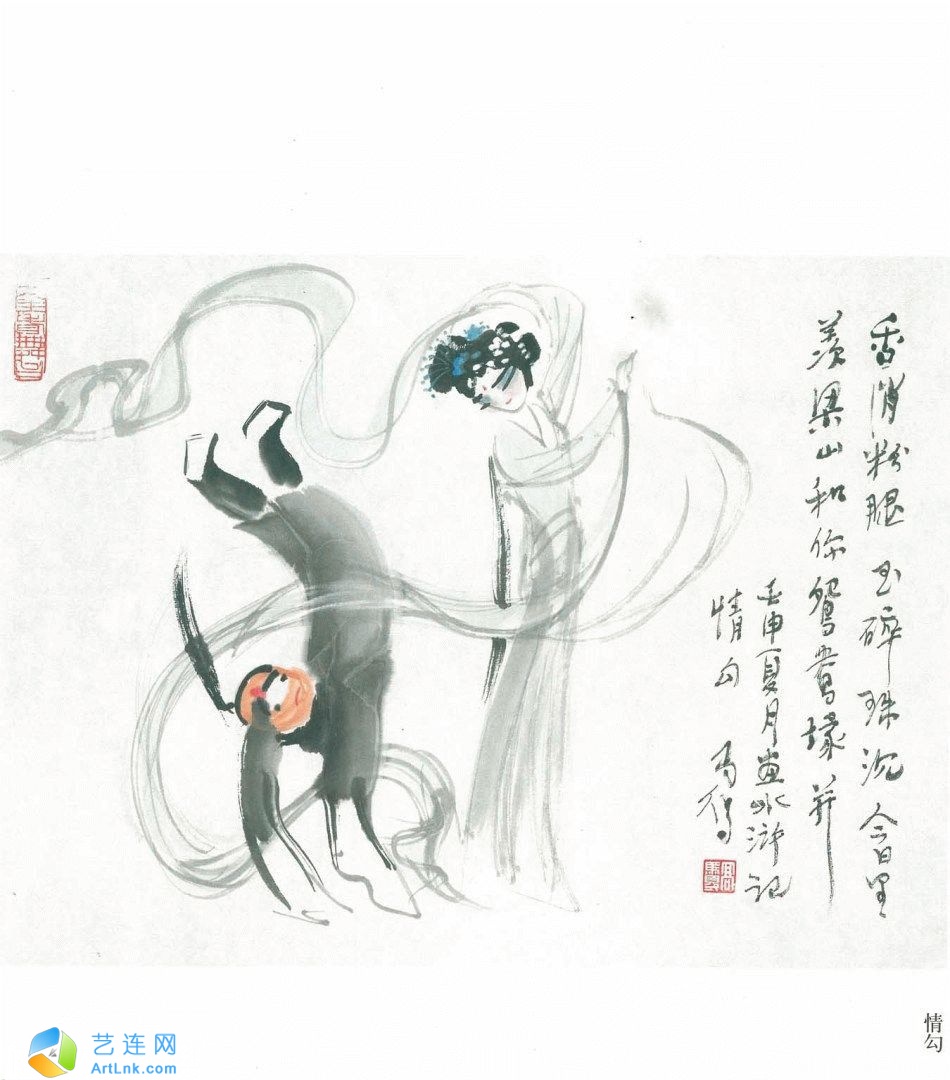 香消粉腿玉碎珠沉今日里
羡梁山和你鴛鴦塚并
壬申夏月畫水浒记
情勾 马得
情勾
艺连网
ArtLnk.com